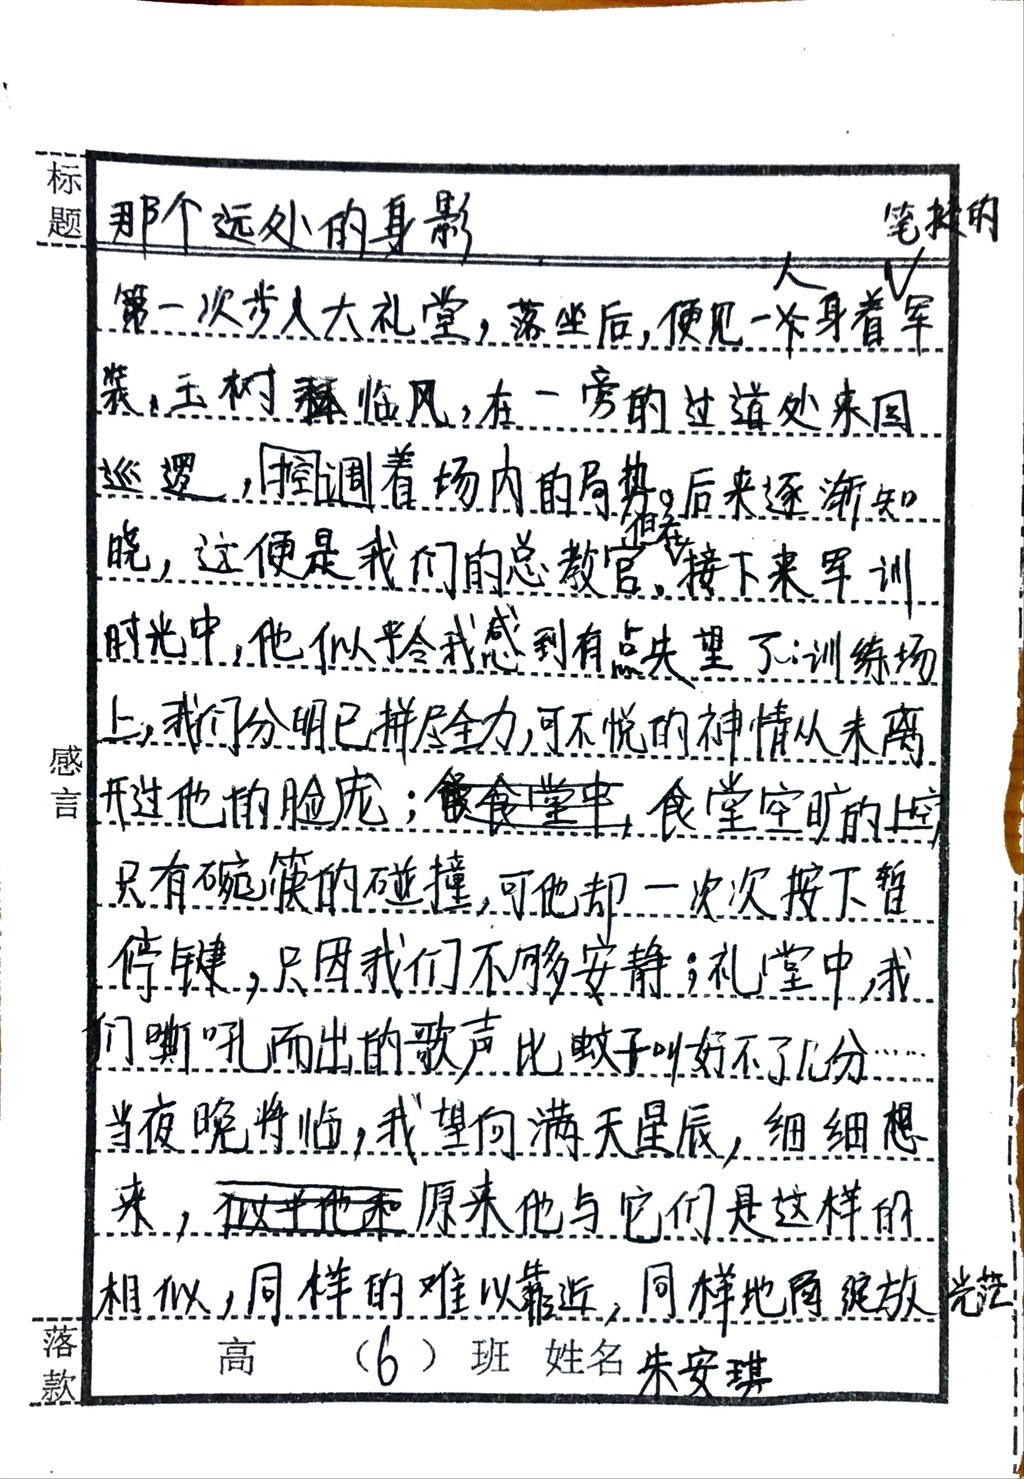 标题
那个远处的身影
笔挺的
人
第一次步入大礼堂，落坐后，便见一身着军
装，玉树临风，在一旁的过道处来回
巡逻，控调着场内的局势。后来逐渐知
但在
晓，这便是我们的总教官。接下来军训
时光中，他似乎令我感到有点失望了：训练场
上，我们分明已拼尽全力，可不悦的神情从未离
开过他的脸庞；食堂空旷的上空，
只有碗筷的碰撞，可他却一次次按下暂
停键，只因我们不够安静；礼堂中，我
们嘶吼而出的歌声比蚊子叫好不了几分……
当夜晚将临，我望向满天星辰，细细想
来，原来他与它们是这样的
相似，同样的难以靠近，同样地绽放光茫
感言
落款
高 （6）班 姓名 朱安琪